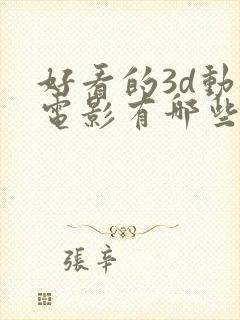 好看的3d動
電影有哪些
張辛